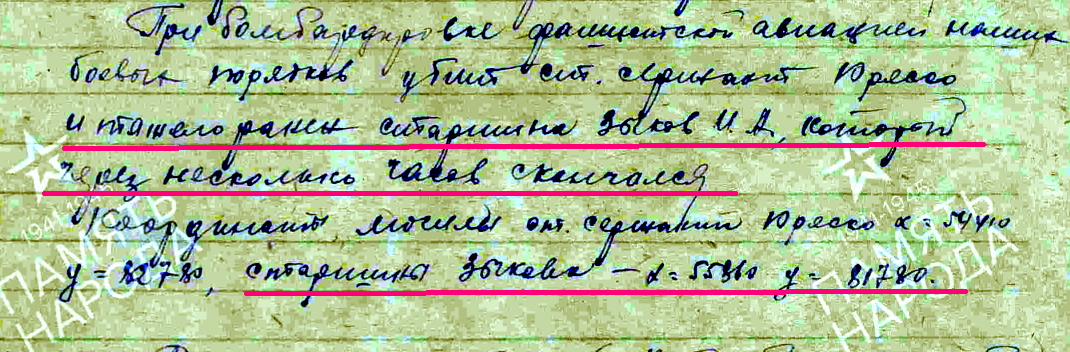 При бомбардировке фашистской авиацией наших
боевых порядков убит ст. сержант Юрессо
и тяжело ранен старшина Зыков И. А., который
через несколько часов скончался
Координаты могилы ст. сержанта Юрессо x = 54410
y = 82780, старшины Зыкова — x = 55360 y = 81780.
1941-1945
ПАМЯТЬ
НАРОДА
1941-1945
ПАМЯТЬ
НАРОДА